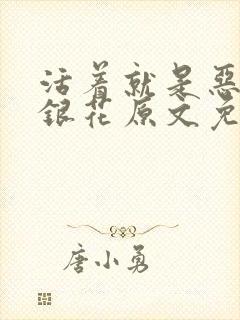 活着就是恶
銀花原文免
唐小勇